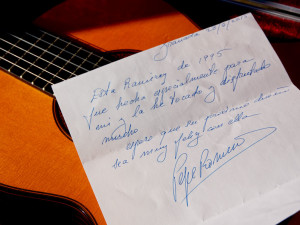 Esta Ramirez de 1995
fue hecha especialmente para
mi y la he tocado y disfrutado
mucho
espero que su proximo dueño
sea muy feliz con ella
Pepe Romero